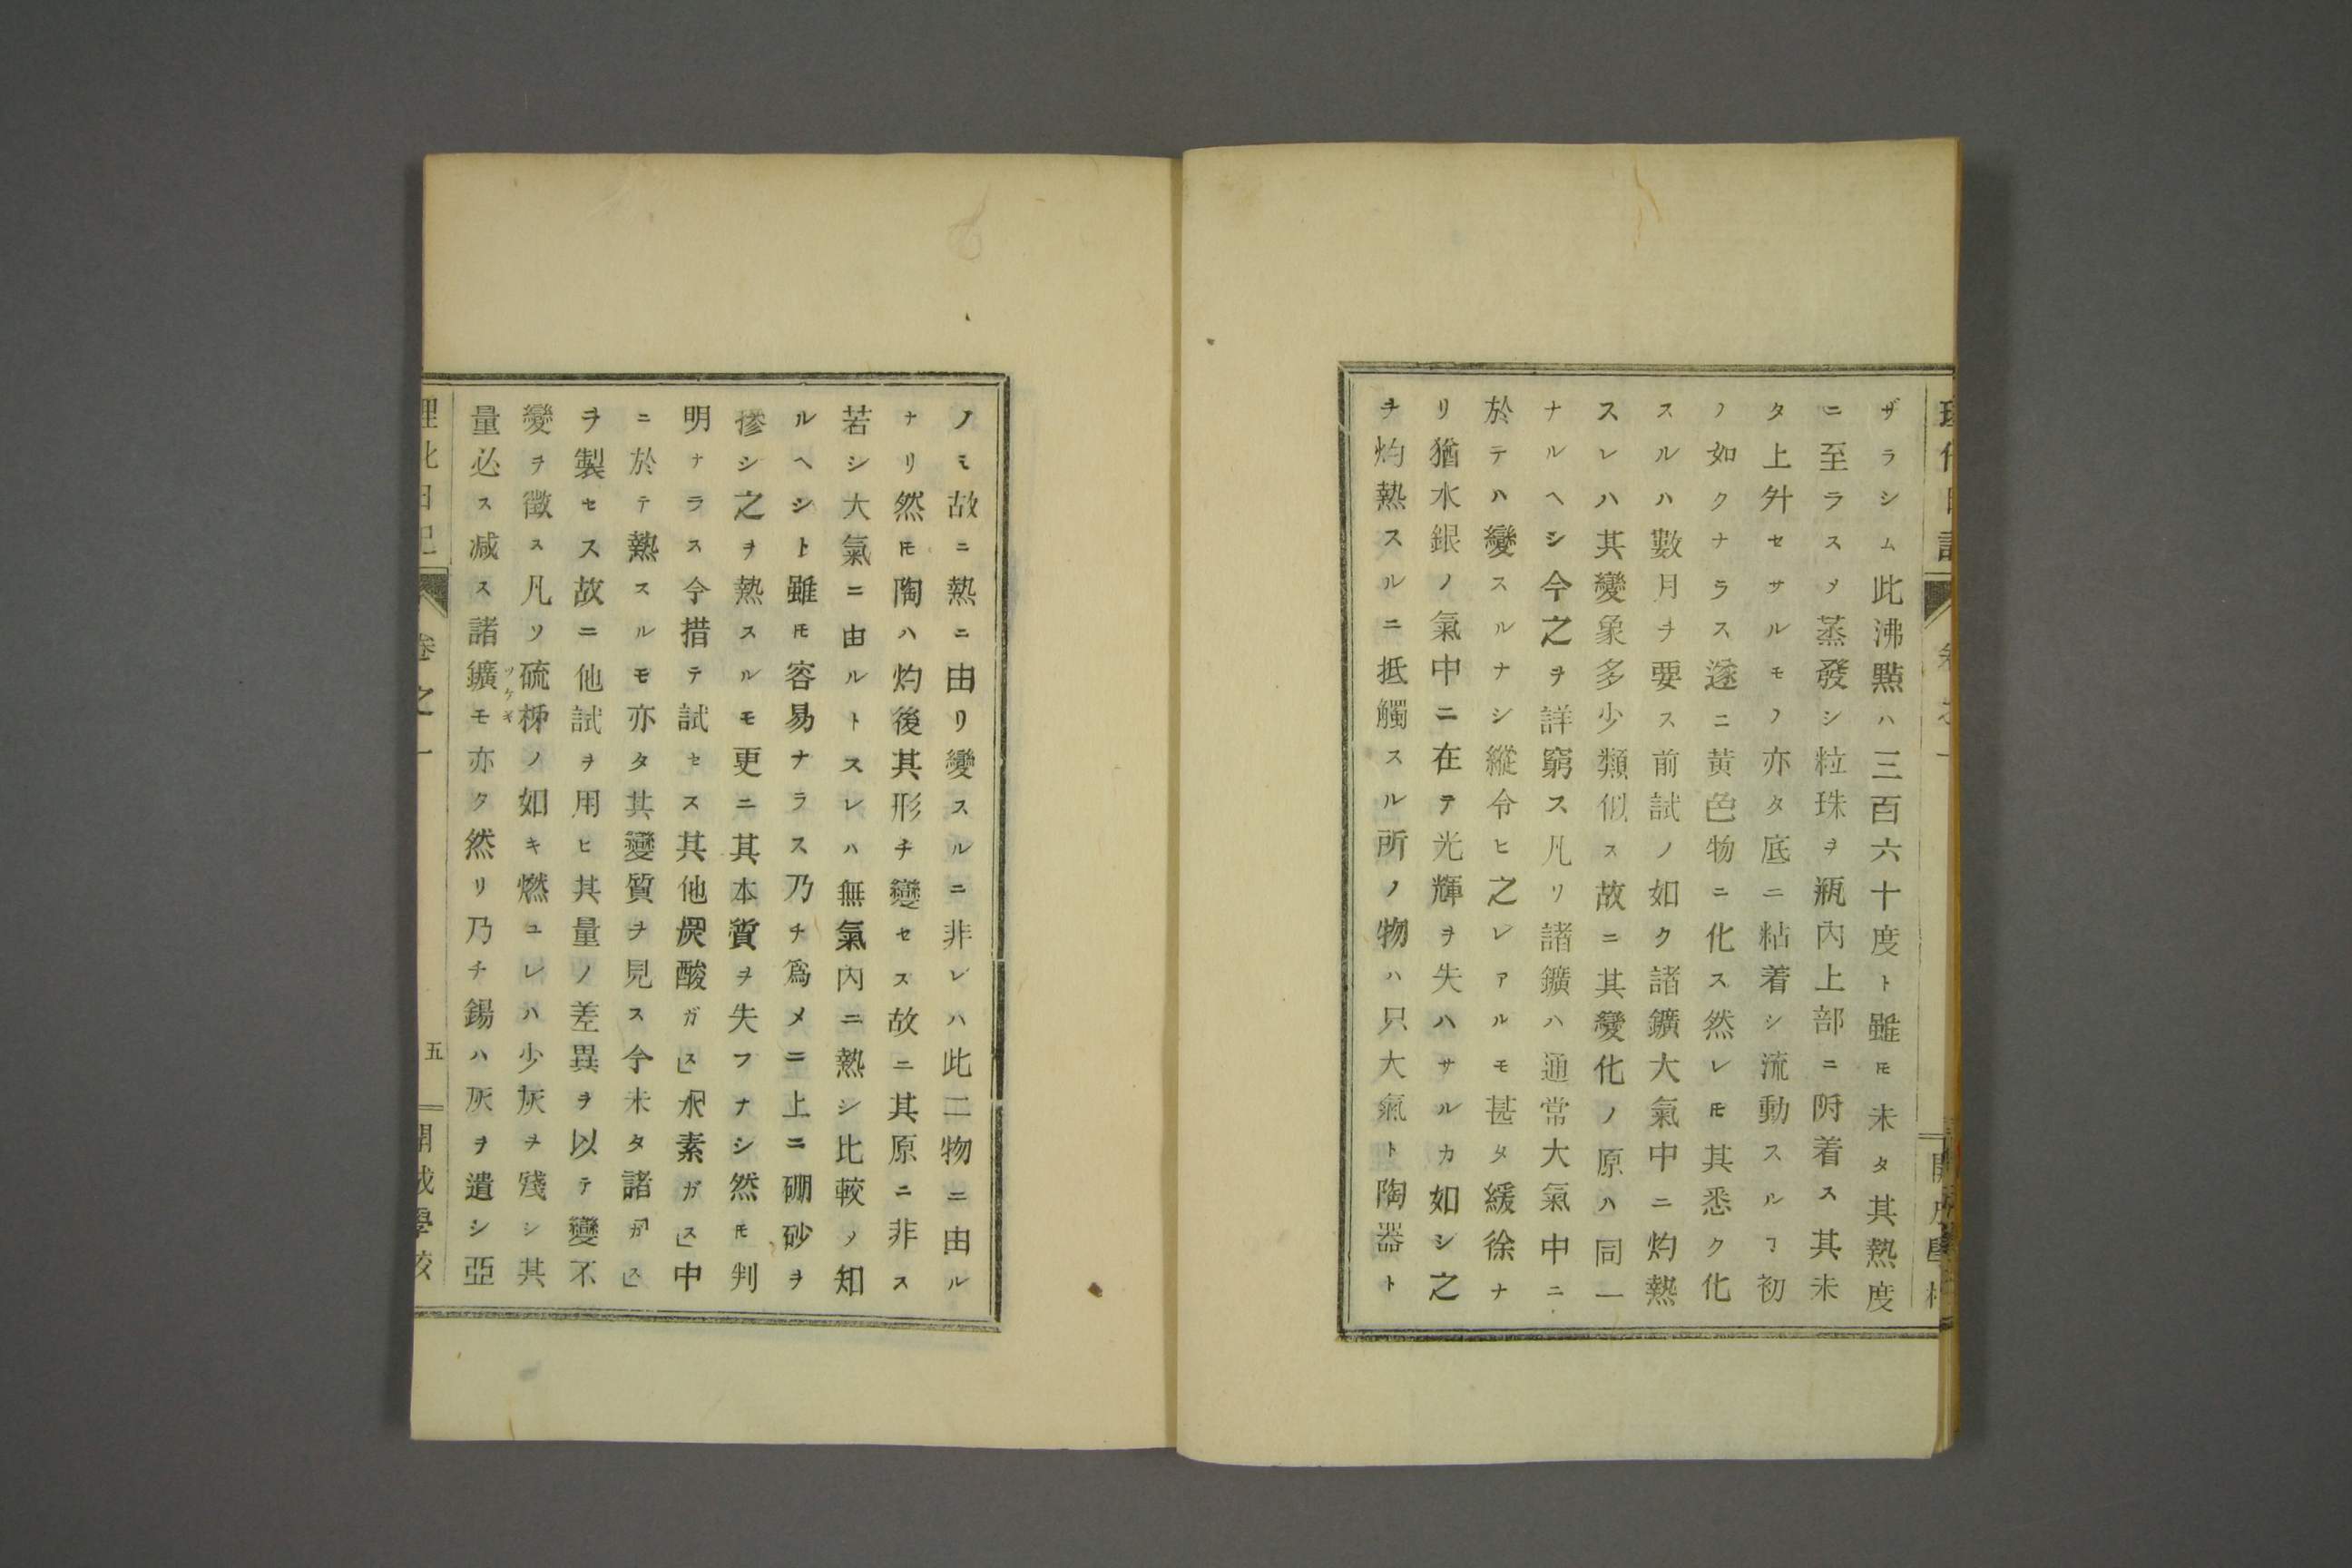 ザラシム此沸點ハ三百六十度ト雖𪜈未タ其熱度
ニ至ラスヲ蒸發シ粒珠ヲ瓶內上部ニ附着ス其未
タ上舛セサルモノ亦タ底ニ粘着シ流動スルヿ初
ノ如クナラス遂ニ黃色物ニ化ス然レ𪜈其悉ク化
スルハ數月ヲ要ス前試ノ如ク諸鑛大氣中ニ灼熱
スレハ其變象多少類似ス故ニ其變化ノ原ハ同一
ナルヘシ今之ヲ詳窮ス凡リ諸鑛ハ通常大氣中ニ
於テハ變スルナシ縱令ヒ之レアルモ甚タ緩徐ナ
リ猶水銀ノ氣中ニ在テ光輝ヲ失ハサルカ如シ之
ヲ灼熱スルニ抵觸スル所ノ物ハ只大氣ト陶器ト
ノミ故ニ熱ニ由リ變スルニ非レハ此二物ニ由ル
ナリ然𪜈陶ハ灼後其形チ變セス故ニ其原ニ非ス
若シ大氣ニ由ルトスレハ無氣內ニ熱シ比較ノ知
ルヘシト雖𪜈容易ナラス乃チ爲メニ上ニ硼砂ヲ
摻シ之ヲ熱スルモ更ニ其本質ヲ失フナシ然𪜈判
明ナラス今措テ試セス其他炭酸ガス」「水素ガス」中
ニ於テ熱スルモ亦タ其變質ヲ見ス今未タ諸「ガス」
ヲ製セス故ニ他試ヲ用ヒ其量ノ差異ヲ以テ變不
變ヲ徵ス凡ソ硫柹ツケギノ如キ燃ユレハ少灰ヲ殘シ其
量必ス減ス諸鑛モ亦タ然リ乃チ錫ハ灰ヲ遺シ亞
卷之一
五
開成學校